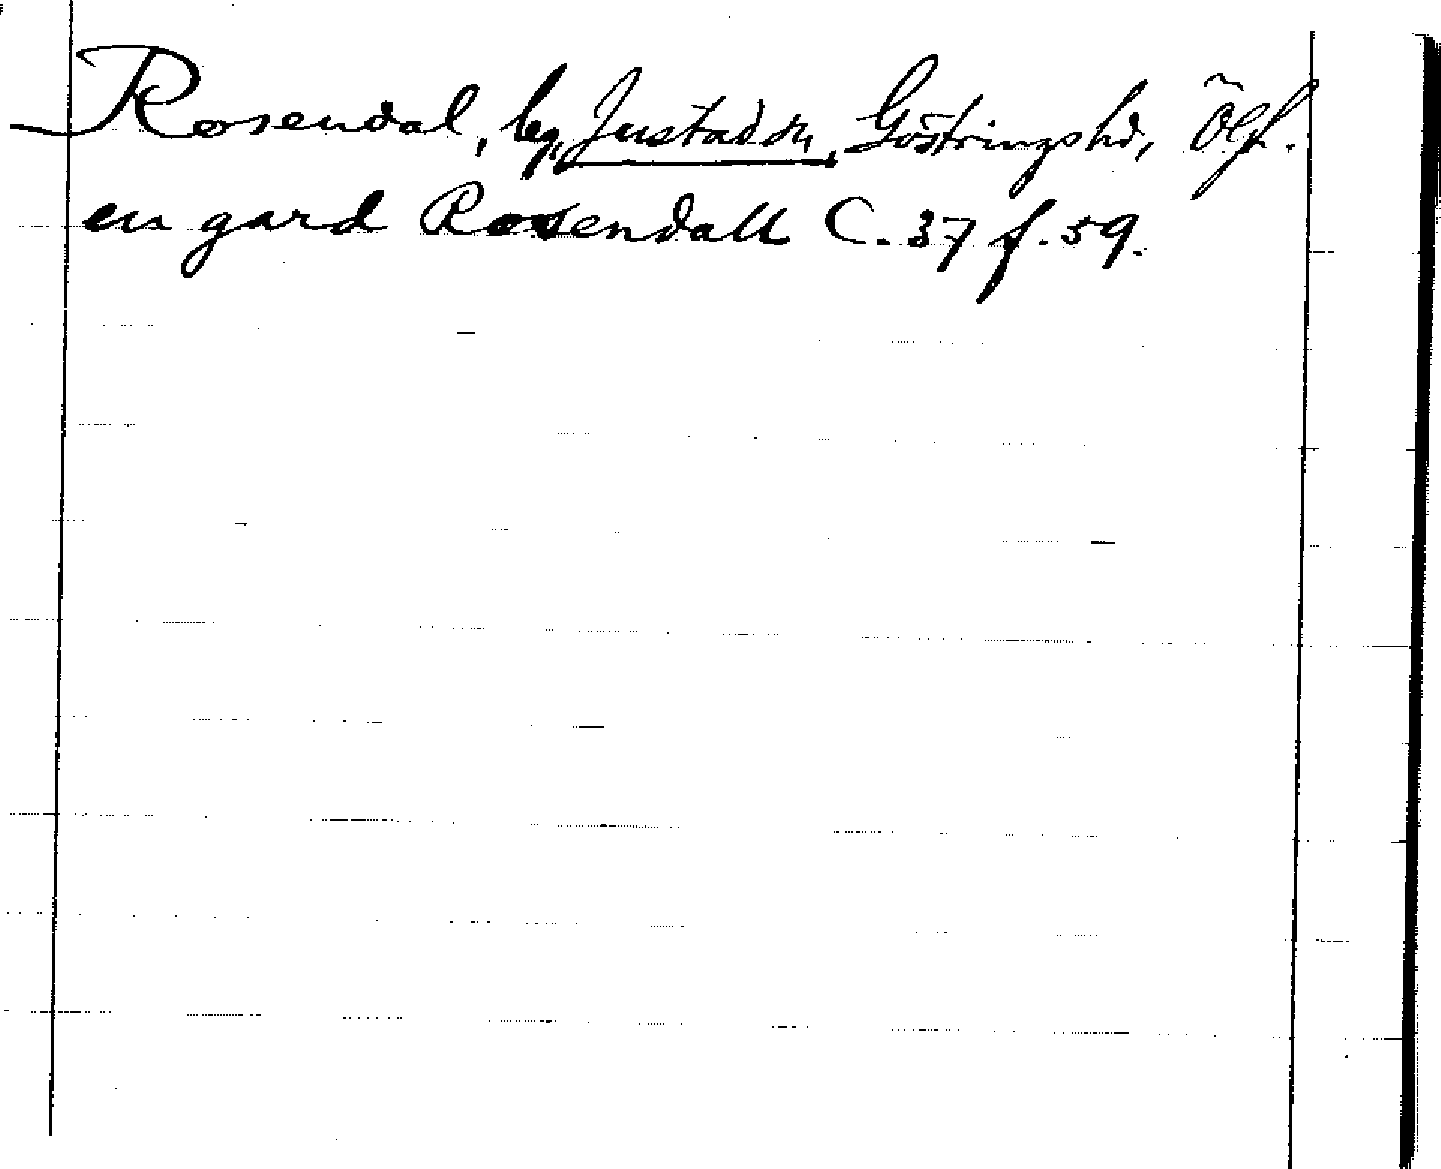 Rosendal, by, Justad sn, Göstringshd, Ölf.
en gard Rosendall C. 37 f. 59.